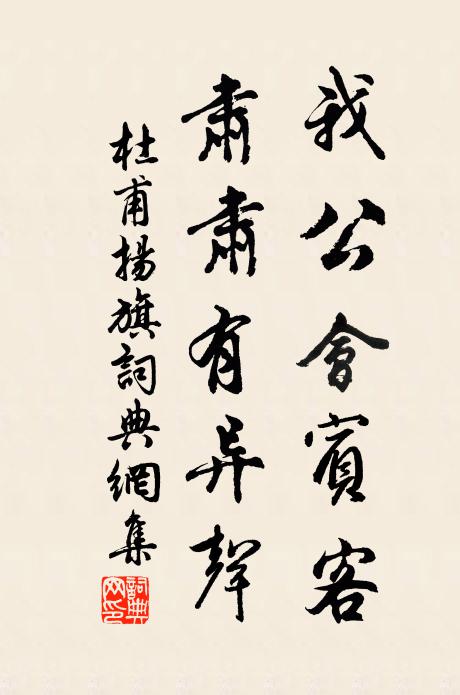 我公會賓客
肅肅有异聲
杜甫揚旗詞典網集
詞典網印